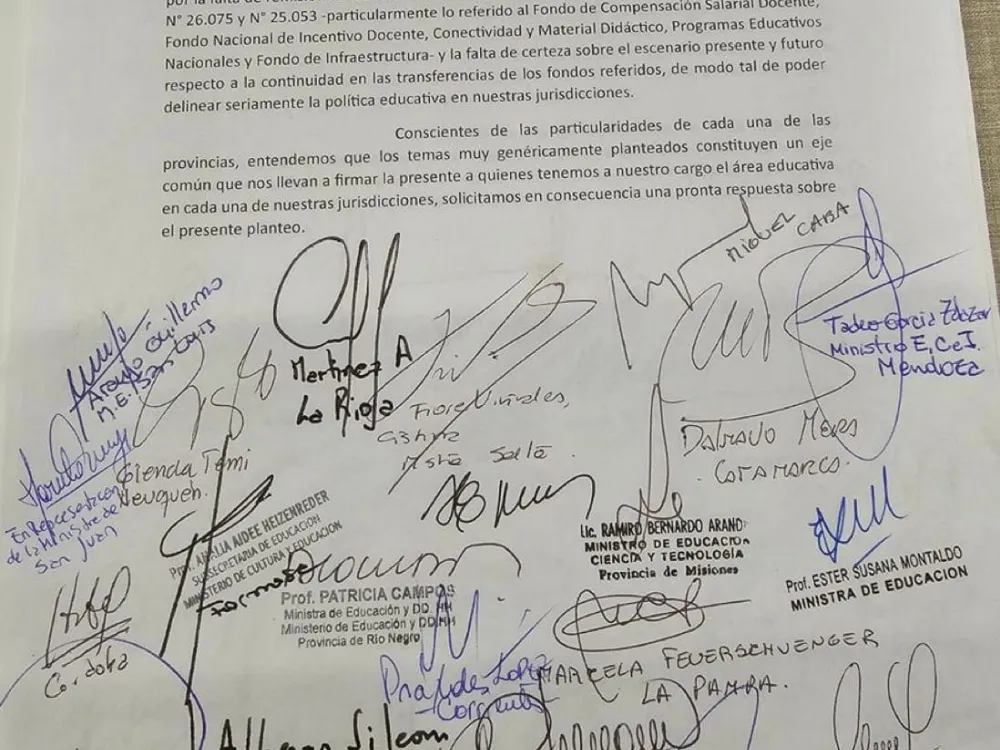 N° 26.075 y N° 25.053 -particularmente lo referido al Fondo de Compensación Salarial Docente,
Fondo Nacional de Incentivo Docente, Conectividad y Material Didáctico, Programas Educativos
Nacionales y Fondo de Infraestructura- y la falta de certeza sobre el escenario presente y futuro
respecto a la continuidad en las transferencias de los fondos referidos, de modo tal de poder
delinear seriamente la política educativa en nuestras jurisdicciones.
Conscientes de las particularidades de cada una de las
provincias, entendemos que los temas muy genéricamente planteados constituyen un eje
común que nos llevan a firmar la presente a quienes tenemos a nuestro cargo el área educativa
en cada una de nuestras jurisdicciones, solicitamos en consecuencia una pronta respuesta sobre
el presente planteo.
MIGUEL CABA
Araujo Guillermo
M.E. San Luis
Martinez A
La Rioja
Tadeo Garcia Zalazar
Ministro E, C e I.
Mendoza
Fiore Viñuales,
Salta
Dalmao Mera
Catamarca.
Glenda Temi
Neuquén.
En Representación
de la Ministra de
San Juan
Prof. ANALIA AIDEE HEIZENREDER
SUBSECRETARIA DE EDUCACION
MINISTERIO DE CULTURA Y EDUCACION
Formosa
Lic. RAMIRO BERNARDO ARANDA
MINISTRO DE EDUCACION
CIENCIA Y TECNOLOGÍA
Provincia de Misiones
Prof. ESTER SUSANA MONTALDO
MINISTRA DE EDUCACION
Prof. PATRICIA CAMPOS
Ministra de Educación y DD.HH
Ministerio de Educación y DD.HH
Provincia de Río Negro
Córdoba
MARCELA FEUERSCHVENGER
LA PAMPA.
Práxedes López
Corrientes